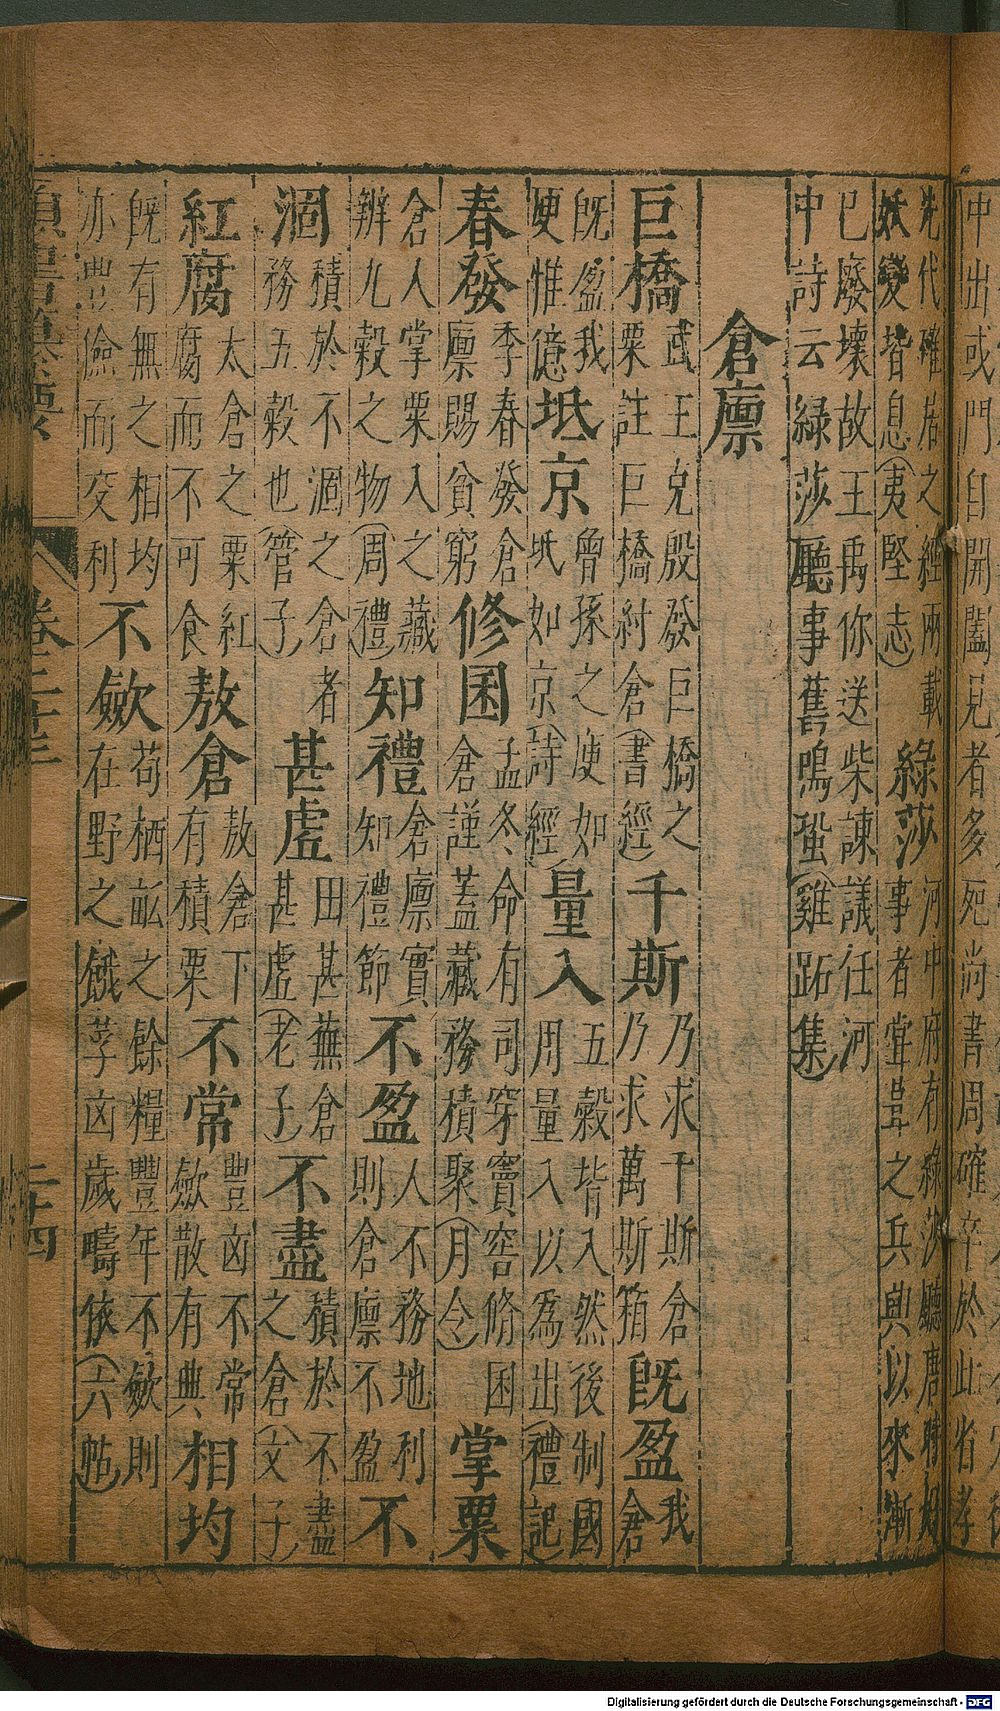 中出或門自開闔見者多死尚書周確卒於此省孝
先代雖居之經兩載
妖變皆息(夷堅志)
綠莎
河中府有綠莎廳唐時好
事者之兵興以來漸
已廢壞故王禹你送柴諫議任河
中詩云綠莎廳事舊鳴蛩(雞跖集)
倉廩
巨橋
武王克殷發巨橋之
粟註巨橋紂倉(書經)
千斯
乃求千斯倉
乃求萬斯箱
既盈
我
倉
既盈我
庾惟億
坻京
曾孫之庾如
坻如京(詩經)
量入
五穀皆入然後制國
用量入以為出(禮記)
春發
季春發倉
廩賜貧窮
修囷
孟冬命有司穿竇窖脩囷
倉謹蓋藏務積聚(月令)
掌粟
倉人掌粟入之藏
辨九穀之物(周禮)
知禮
倉廩實
知禮節
不盈
人不務地利
則倉廩不盈
不
涸
積於不涸之倉者
務五穀也(管子)
甚虛
田甚蕪倉
甚虛(老子)
不盡
積於不盡
之倉(文子)
紅腐
太倉之粟紅
腐而不可食
敖倉
敖倉下
有積粟
不常
豐凶不常
歛散有典
相均
既有無之相均
亦豐儉而交利
不歛
苟栖畝之餘糧豐年不歛則
在野之餓莩凶歲疇依(六帖)
卷二十三
二十四
Digitalisierung gefördert durch die Deutsche Forschungsgemeinschaft - DFG